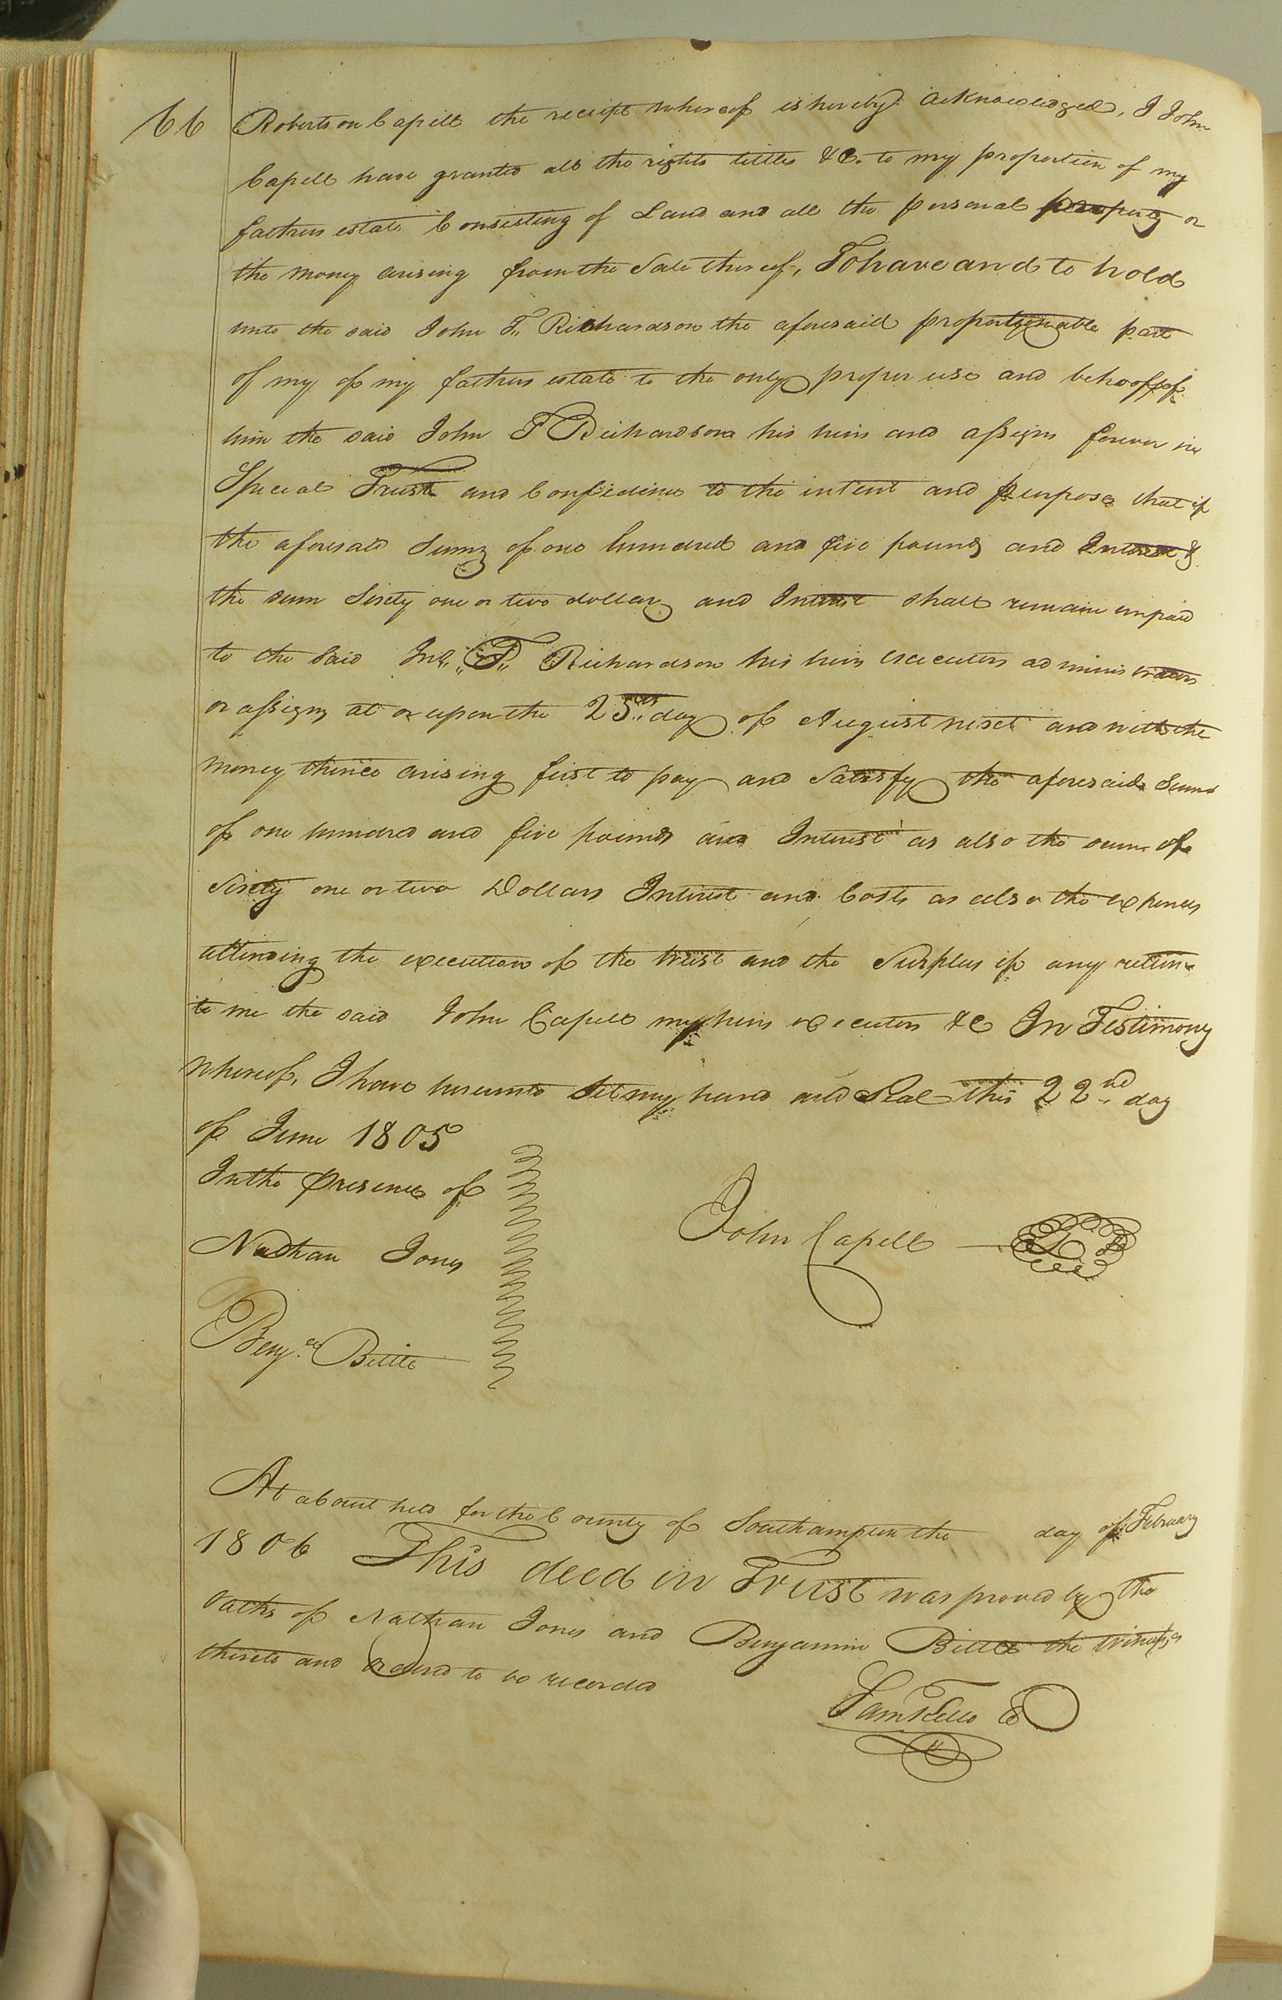 66
Robertson Capell the receipt whereof is hereby acknowledged, I John
Capell have granted all the rights titles &C. to my proportion of my
fathers estate Consisting of Land and all the personal property or
the money arising from the Sale thereof, To have and to hold
unto the said John T. Richardson the aforesaid proportionable part
of my of my fathers estate to the only proper use and behoof of
him the said John T Richardson his heirs and assigns forever in
Special Trust and Confidence to the intent and purpose that if
the aforesaid Sum of one hundred and five pounds and Interest &
the sum Sixty one or two dollars and Interest shall remain unpaid
to the said Jno. T. Richardson his heirs executors administrators
or assigns at or upon the 25th day of August next and with the
money thence arising first to pay and Satisfy the aforesaid Sum
of one hundred and five pounds and Interest as also the sum of
Sixty one or two Dollars Interest and Costs as also the expences
attending the execution of the trust and the Surplus if any return
to me the said John Capell my heirs executors &C In Testimony
whereof, I have hereunto Set my hand and Seal this 22nd day
of June 1805
In the presence of
Nathan Jones
John Capell
Benja. Bittle
At a Court held for the County of Southampton the day of February
1806 This deed in Trust was proved by the
oaths of Nathan Jones and Benjamin Bittle the witnesses
thereto and Ordered to be recorded
Sam Kello